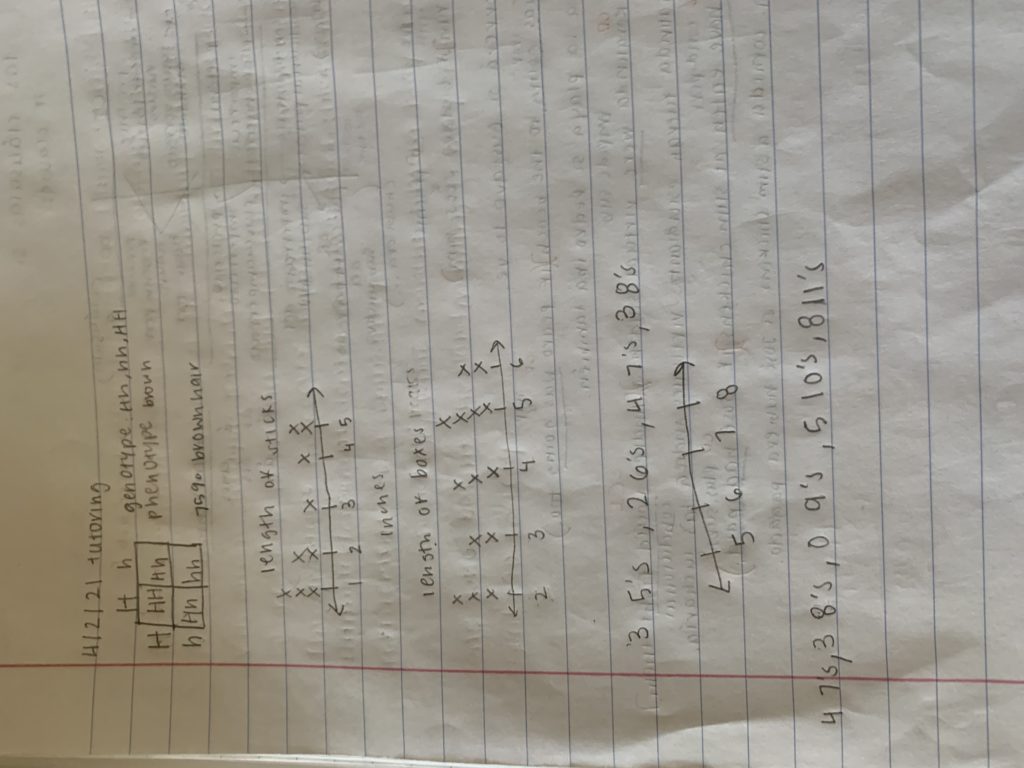 4/2/21 tutoring
H h genotype Hh, hh, HH
H HH Hh phenotype brown
h Hh hh 75% brown hair
length of sticks
x
x x x
x x x x x
1 2 3 4 5
inches
length of boxes
x
x x x
x x x x x
x x x x x
2 3 4 5 6
3 5's, 2 6's, 4 7's, 3 8's
5 6 7 8
4 7's, 3 8's, 0 9's, 5 10's, 8 11's